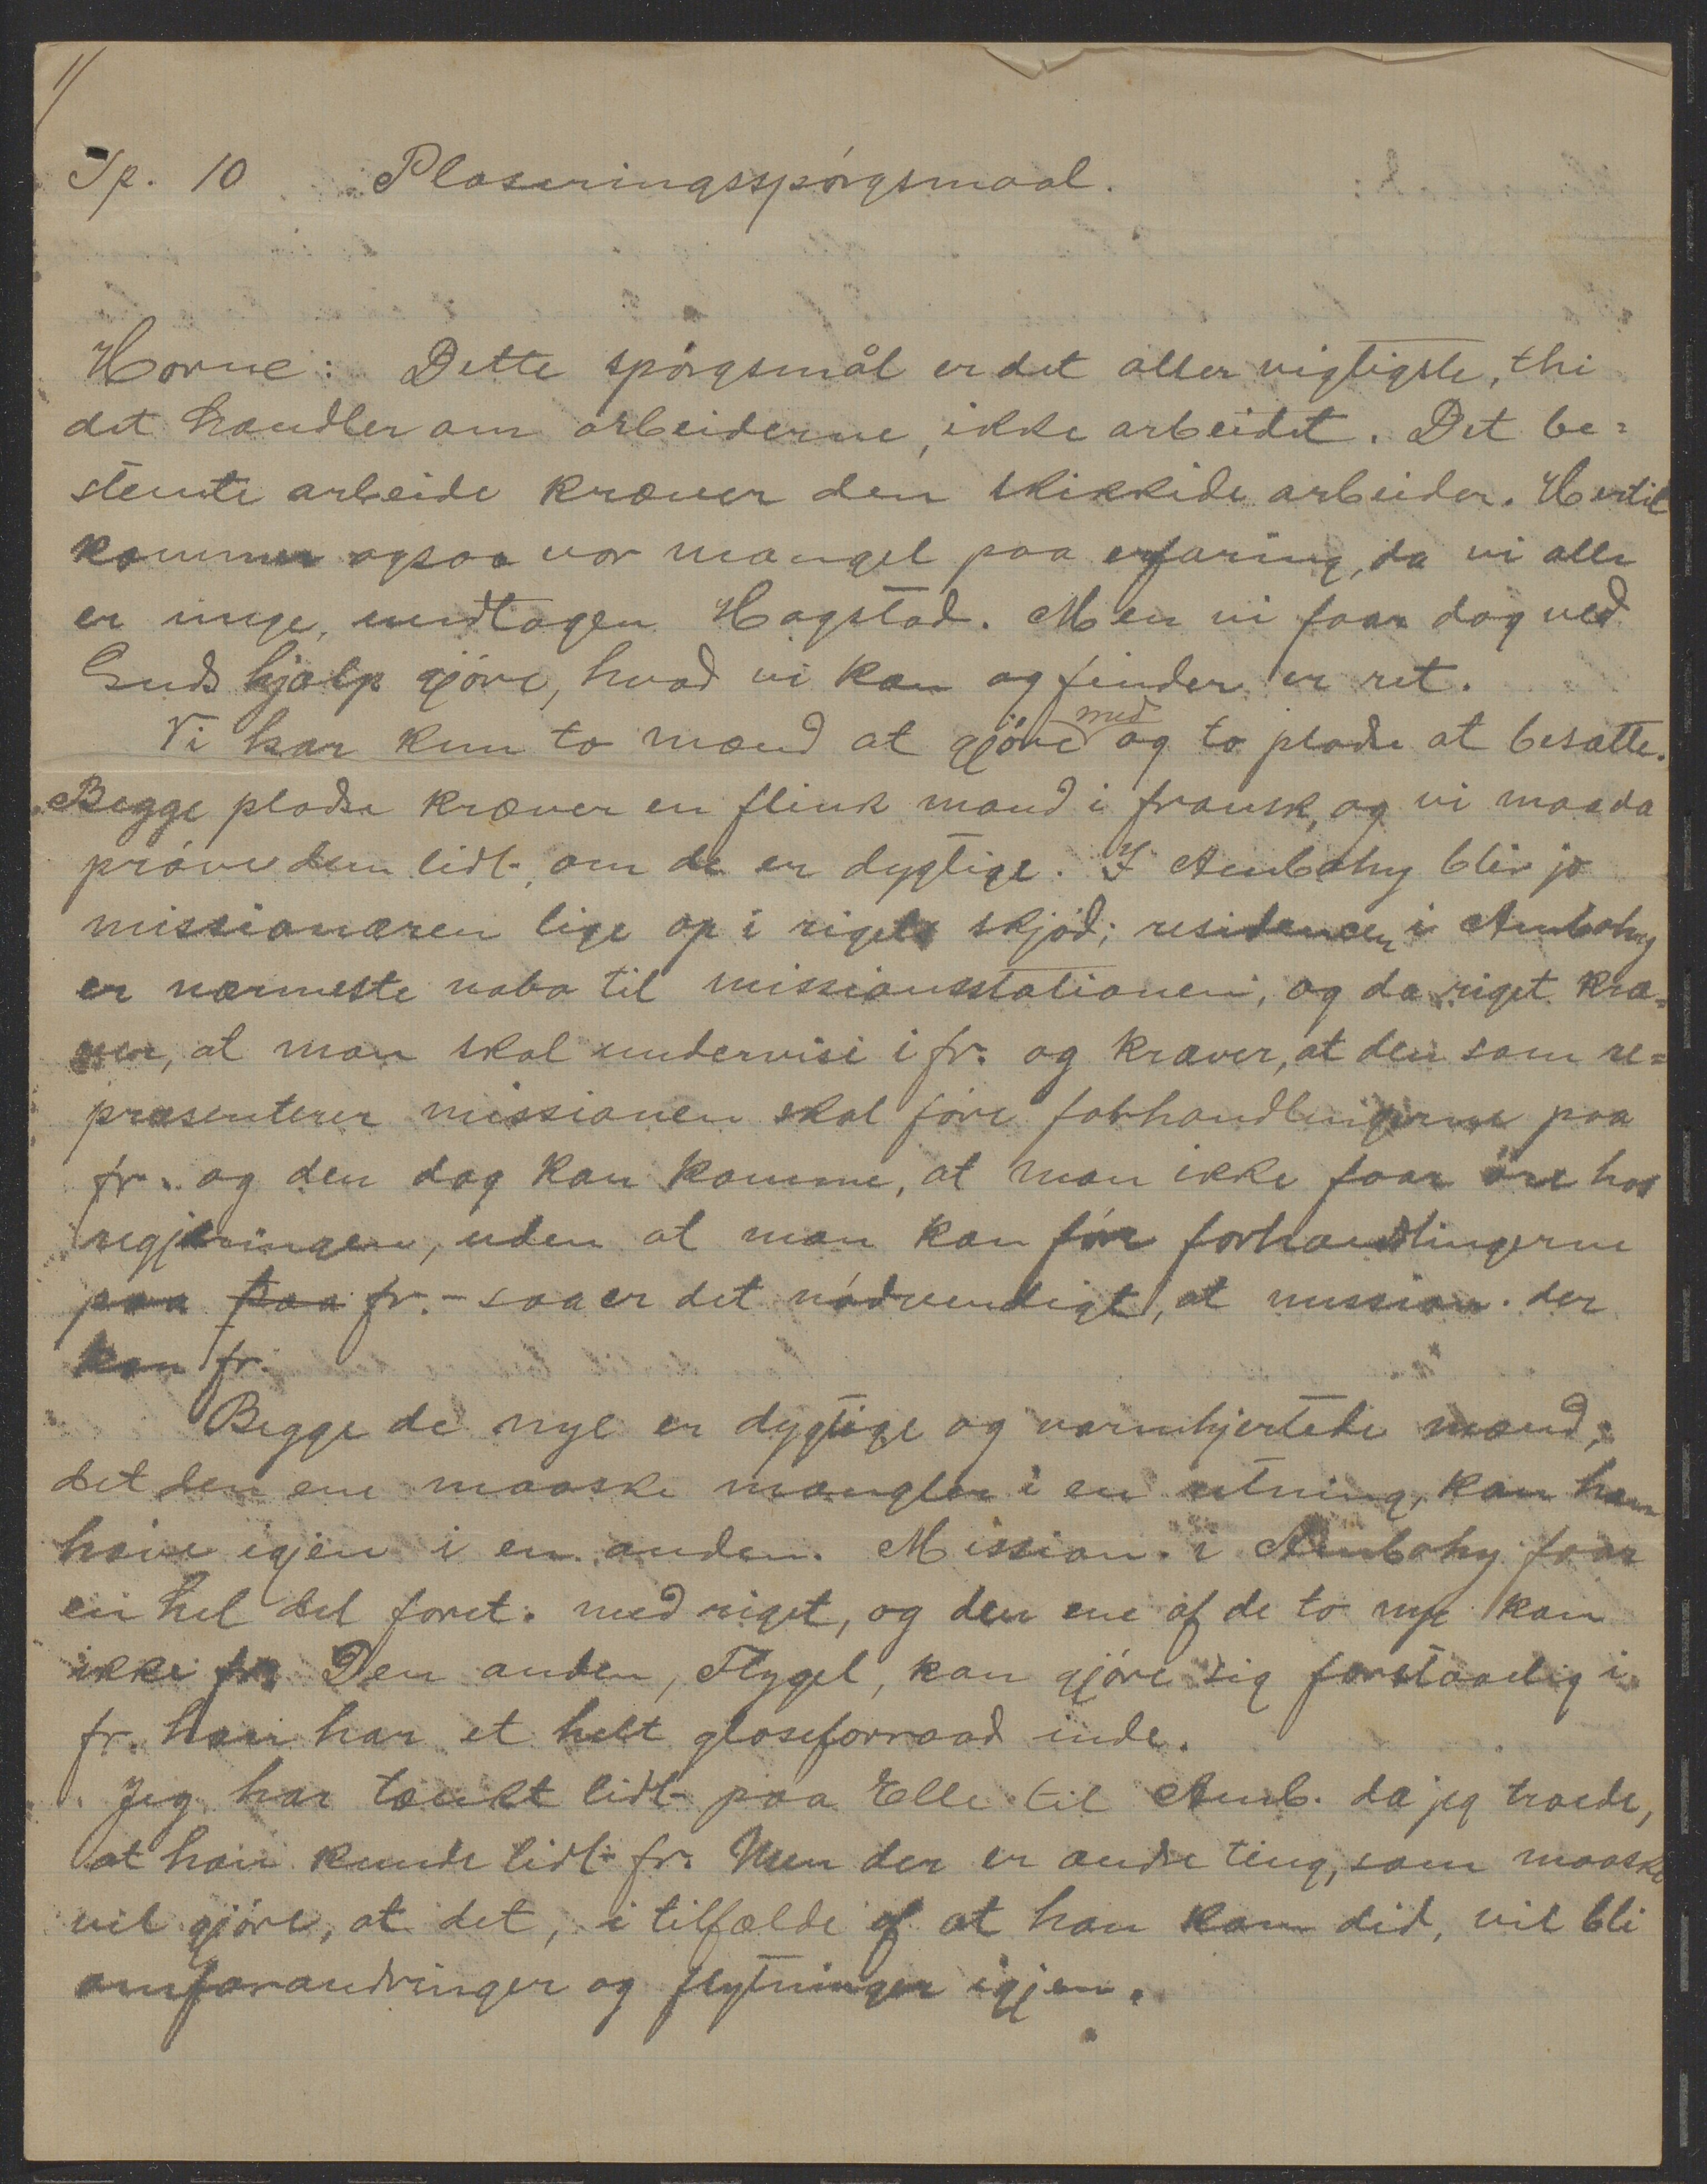 1/
Sp. 10 Plaseringsspørgsmaal.
Horne: Dette spørgsmål er det aller vigtigste, thi
det handler om arbeiderne, ikke arbeidet. Det be=
stemte arbeide kræver den skikkede arbeider. Hertil
kommer ogsaa vor mangel paa erfaring, da vi alle
er unge, undtagen Hagstad. Men vi faar dog ved
Guds hjælp gjöre, hvad vi kan og finder er ret.
Vi har kun to mænd at gjöre med og to pladse at besætte.
Begge pladse kræver en flink mand i fransk, og vi maa da
pröve dem lidt, om de er dygtige. I Ambohy blir jo
missionæren lige op i rigets skjöd; residencen i Ambohy
er nærmeste nabo til missionsstationen, og da riget kræ=
ver, at man skal undervise i fr. og kræver, at den som re=
præsenterer missionen skal före forhandlingerne paa
fr. og den dag kan komme, at man ikke faar öre hos
regjeringen, uden at man kan före forhandlingerne
paa paa fr. - saa er det nödvendigt, at mission. der
kan fr.
Begge de nye er dygtige og varmhjertede mænd;
det den ene maaske mangler i en retning, kan han
have igjen i en anden. Mission. i Ambohy faar
en hel del foret. med riget, og den ene af de to nye kan
ikke fr. Den anden, Flygel, kan gjöre sig forstaaelig i
fr. han har et helt gloseforraad inde.
Jeg har tænkt lidt paa Elle til Amb. da jeg troede,
at han kunde lidt fr. Men der er andre ting, som maaske
vil gjöre, at det, i tilfælde af at han kom did, vil bli
omforandringer og flytninger igjen.